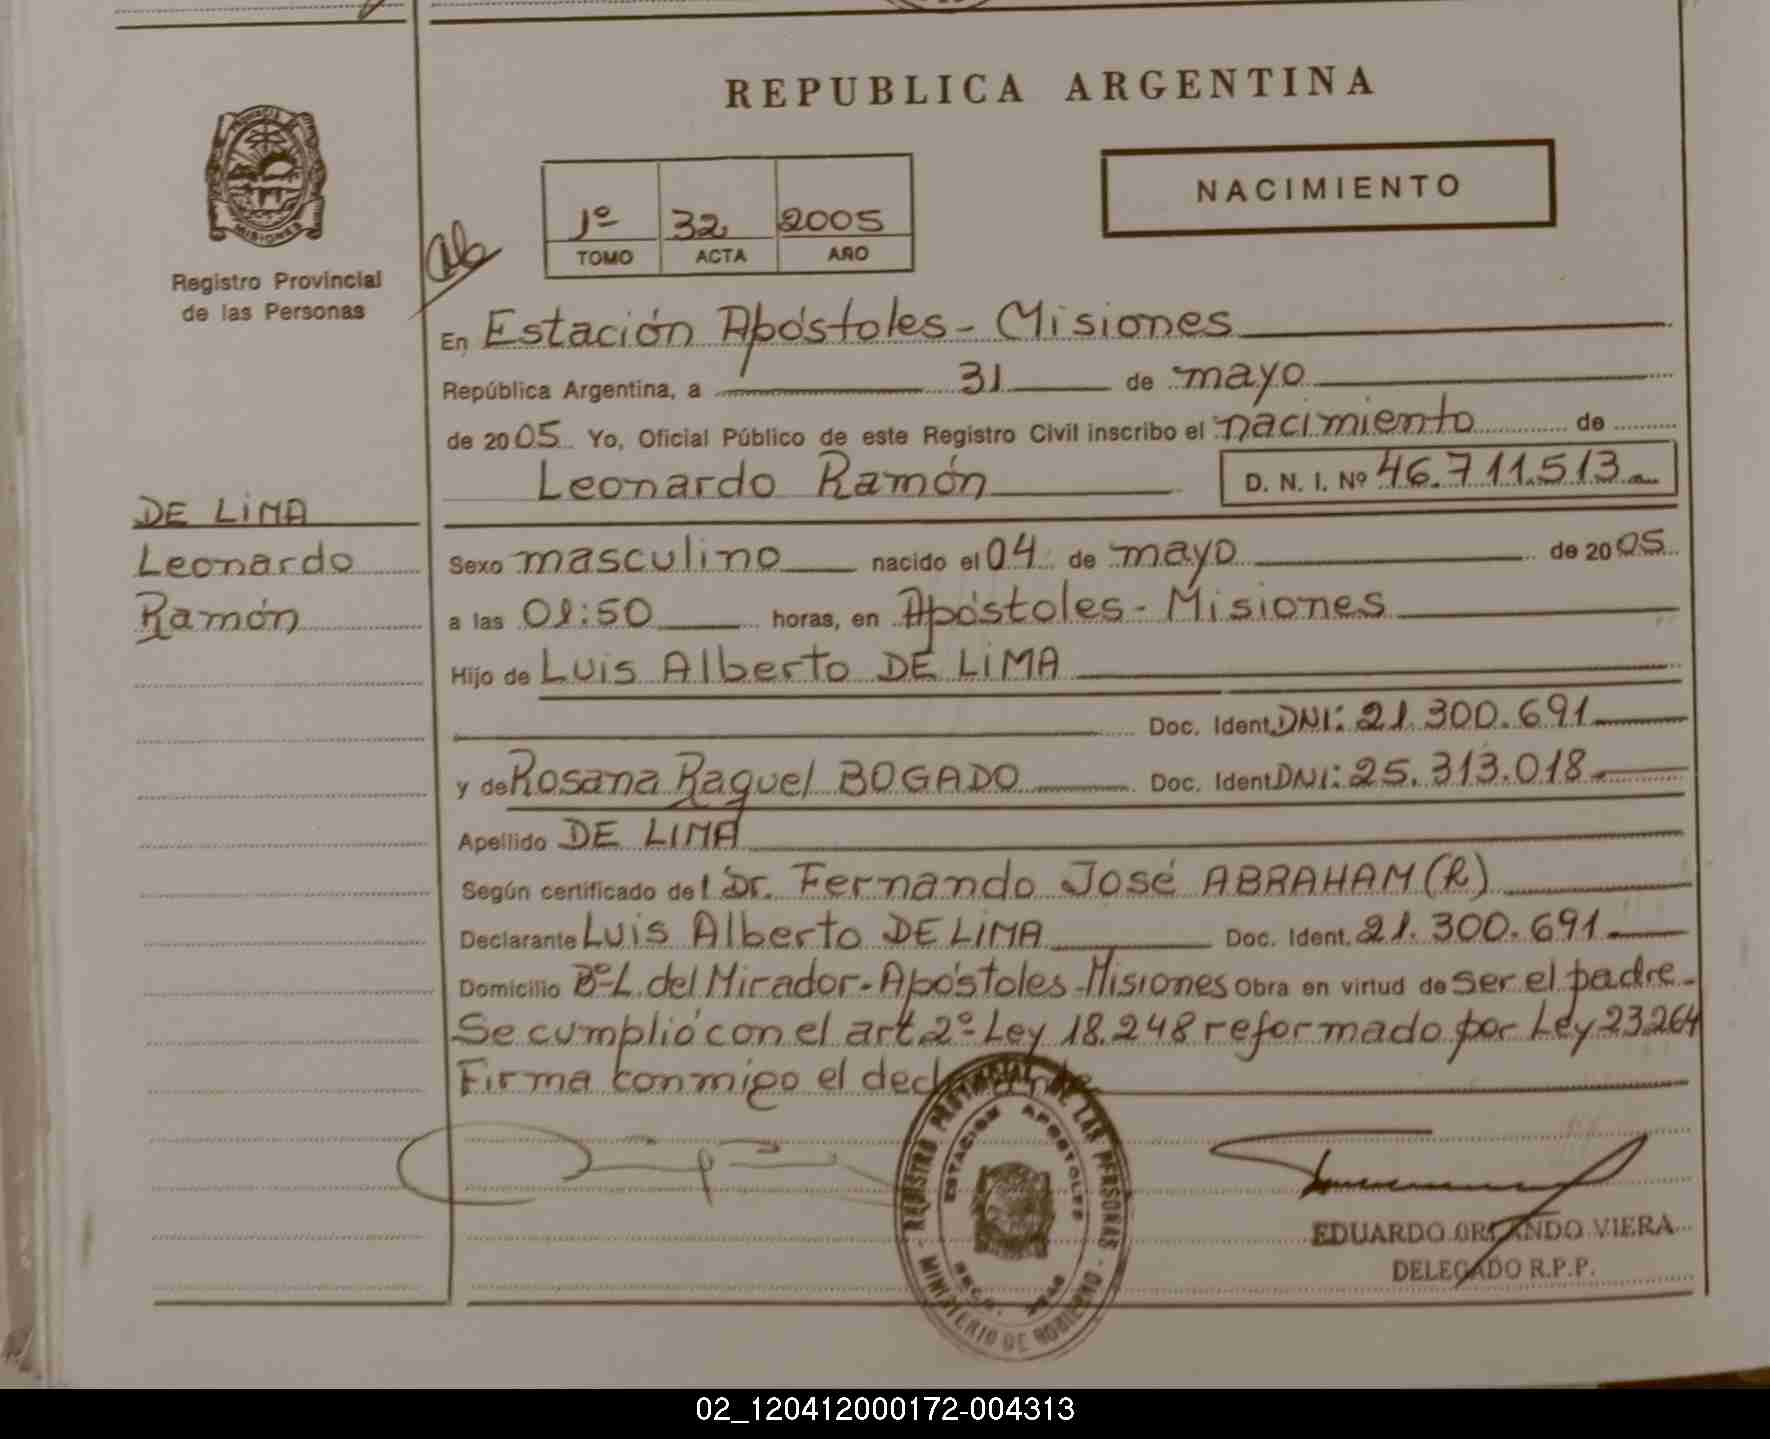 REPUBLICA ARGENTINA
PROVINCIA DE
MISIONES
Registro Provincial
de las Personas
1º 32 2005
TOMO ACTA AÑO
NACIMIENTO
En Estación Apóstoles - Misiones
República Argentina, a 31 de mayo
de 2005 Yo, Oficial Público de este Registro Civil inscribo el nacimiento de
Leonardo Ramón D. N. I. Nº 46.711.513
DE LIMA
Leonardo
Ramón
Sexo masculino nacido el 04 de mayo de 2005
a las 01:50 horas, en Apóstoles - Misiones
Hijo de Luis Alberto DE LIMA
Doc. Ident. DNI: 21.300.691
y de Rosana Raquel BOGADO Doc. Ident. DNI: 25.313.018
Apellido DE LIMA
Según certificado del Dr. Fernando José ABRAHAM (R)
Declarante Luis Alberto DE LIMA Doc. Ident. 21.300.691
Domicilio Bº L. del Mirador - Apóstoles - Misiones Obra en virtud de ser el padre -
Se cumplió con el art 2º Ley 18.248 reformado por Ley 23264
Firma conmigo el declarante
REGISTRO PROVINCIAL DE LAS PERSONAS
ESTACION APOSTOLES
MINISTERIO DE GOBIERNO
EDUARDO ORLANDO VIERA
DELEGADO R.P.P.
02_120412000172-004313